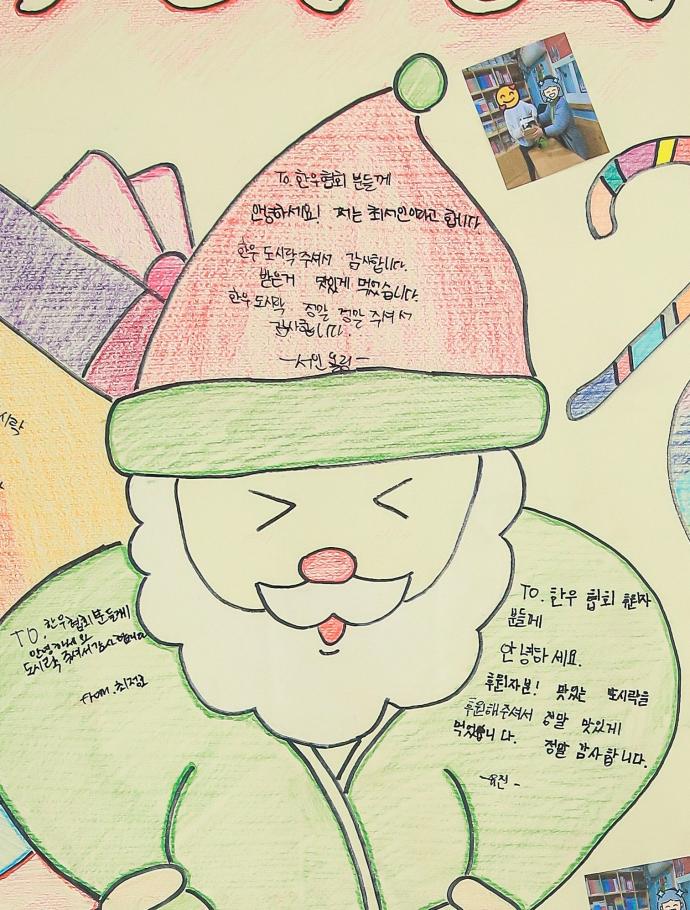 To. 한우협회 분들께
안녕하세요! 저는 최서인이라고 합니다
한우 도시락 주셔서 감사합니다.
받은거 맛있게 먹었습니다.
한우 도시락 정말 정말 주셔서
감사합니다.
-서인 올림-
TO. 한우협회분들께
안녕하세요
도시락 주셔서 감사합니다
from. 최정호
TO. 한우 협회 후원자
분들께
안녕하세요.
후원자분! 맛있는 도시락을
후원해주셔서 정말 맛있게
먹었습니다. 정말 감사합니다.
-유진-
시락